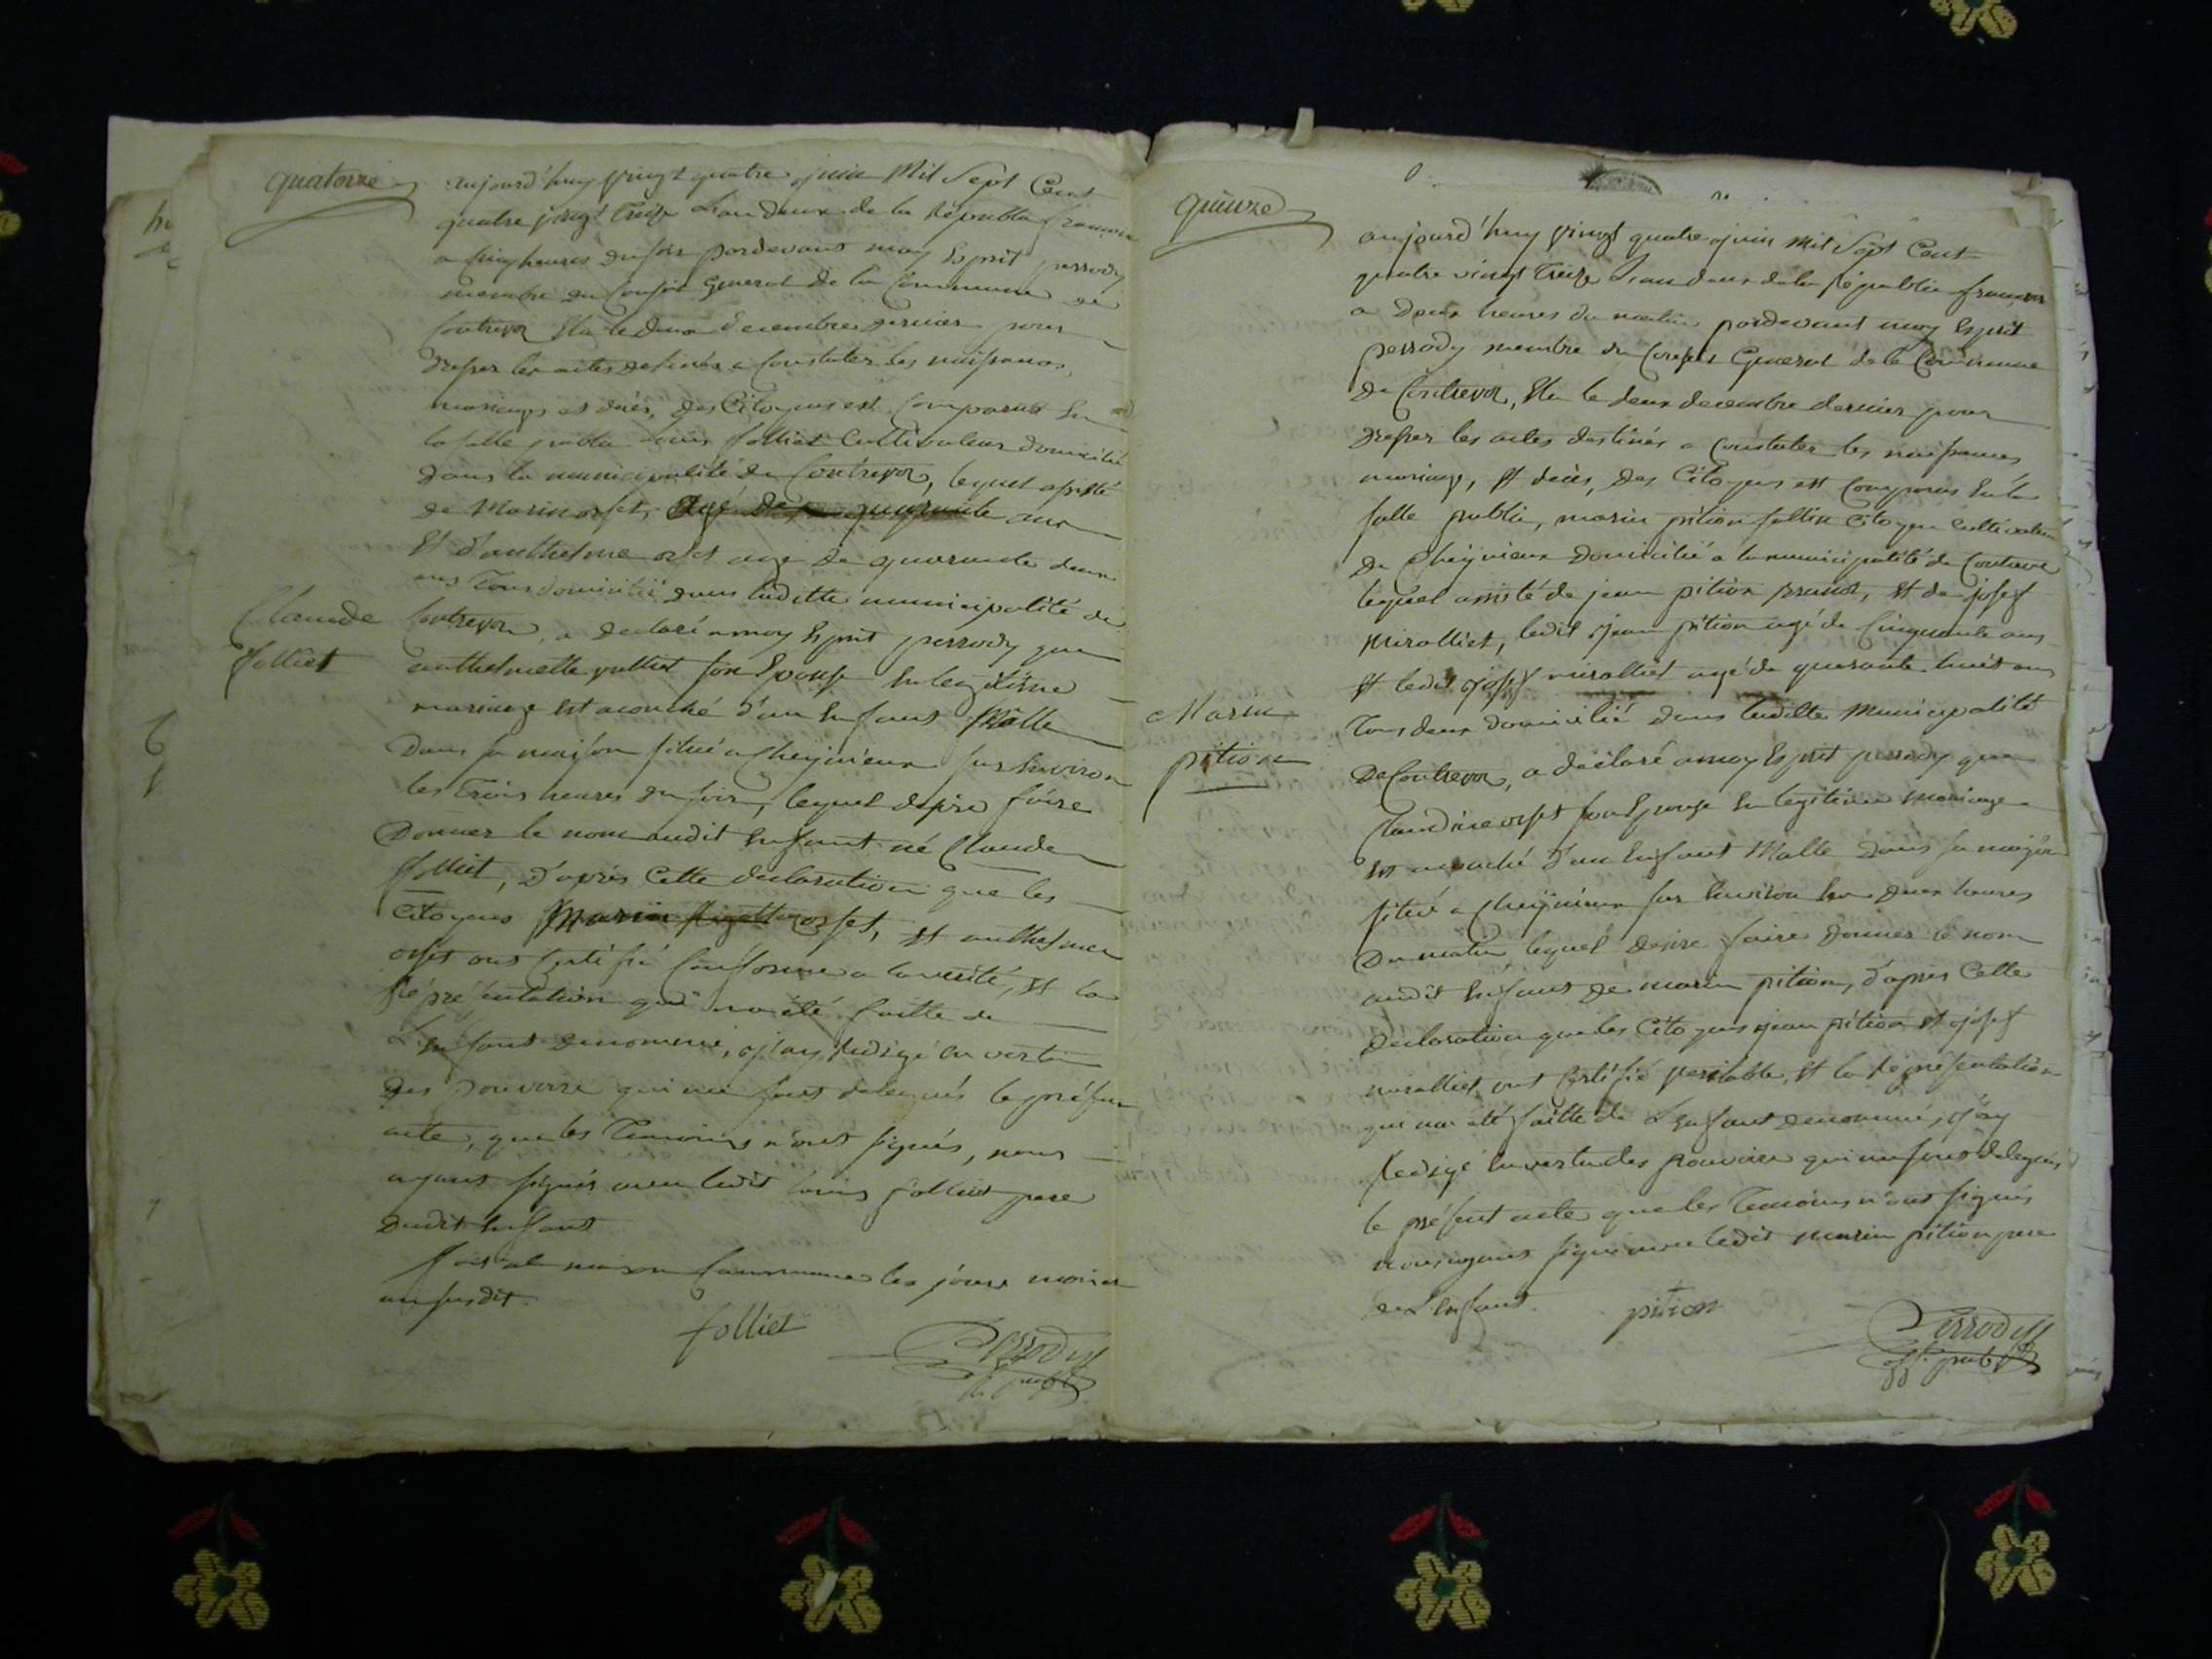 quatorze
aujourd'huy vingt quatre juin Mil Sept Cent
quatre vingt treize L'an deux de la Républi francoise
a cinq heures du soir pardevant moy Esprit perrody
membre du Conseil general de la Commune de
Contrevoz Elu le deux decembre dernier pour
dresser les actes destinés a Constater les naissances,
mariages et décès, des Citoyens est Comparus En
la salle publi Louis folliet Cultivateur domicilié
dans la municipalité de Contrevoz, lequel assisté
de Marin orset, agé de quarante ans
Et d'anthelme orset agé de quarante deux
ans tous domicilié dans laditte municipalité de
Claude
folliet
Contrevoz, a declaré a moy Esprit perrody que
anthelmette son Epouse En legitime
mariage est acouché d'un Enfant Malle
dans sa maison situé a Cheignieux sur Environ
les trois heures du soir, lequel desire faire
donner le nom audit Enfant né Claude
folliet, d'après Cette declaration que les
Citoyens Marin orset, et anthelme
orset ont Certifié Conforme a la verité, Et la
Représentation qui ma été faitte de
L'Enfant denommé, j'ay Redigé en vertu
des pouvoirs qui me sont delegués le présent
acte, que les Temoins n'ont signés, nous
ayant signés avec ledit Louis folliet pere
dudit Enfant
fait al maison Commune les jours mois et
an susdit.
folliet
Perrody
of. publi
quinze
aujourd'huy vingt quatre juin Mil Sept Cent
quatre vingt treize L'an deux de la Républi francois
a deux heures du matin pardevant moy Esprit
perrody membre du Conseil General de la Commune
de Contrevoz, Elu le deux decembre dernier pour
dresser les actes destinés a Constater les naissances
mariage, Et décès, des Citoyens est Comparus En la
salle publi, marin pition Citoyen Cultivateur
de Cheignieux domicilié a la municipalité de Contrevoz
lequel assisté de jean pition, Et de josef
miralliet, ledit jean pition agé de Cinquante ans
Et ledit josef miralliet agé de quarante huit ans
Tous deux domicilié dans laditte Municipalité
Marin
pition
De Contrevoz, a déclaré a moy Esprit perrody que
Claudine orset son Epouse En legitime mariage
Est acouché d'un Enfant Malle dans sa maison
situé a Cheignieux sur Environ les deux heures
du matin lequel desire faire donner le nom
audit Enfant de marin pition, d'apres Cette
declaration que les Citoyens jean pition Et josef
miralliet ont Certifié veritable, Et la Représentation
qui ma été faitte de L'Enfant denommé, j'ay
Redigé En vertu des pouvoirs qui me sont delegués
le présent acte que les Temoins n'ont signés
nous ayant signé avec ledit marin pition pere
de L'Enfant.
pition
Perrody
of. publi